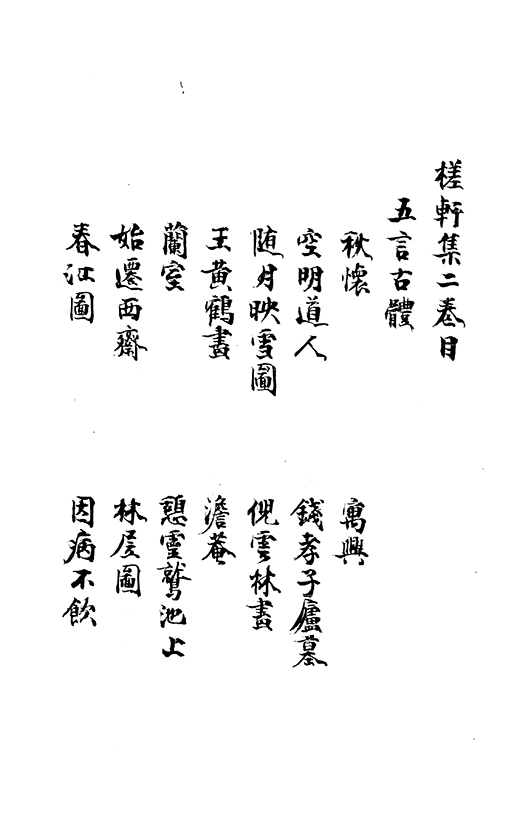 槎軒集二卷目
五言古體
秋懷
寓興
空明道人
錢孝子廬墓
随月映雪圖
倪雲林畫
王黃鶴畫
澹菴
蘭室
憩靈鷲池上
始遷西齋
林屋圖
春江圖
因病不飲